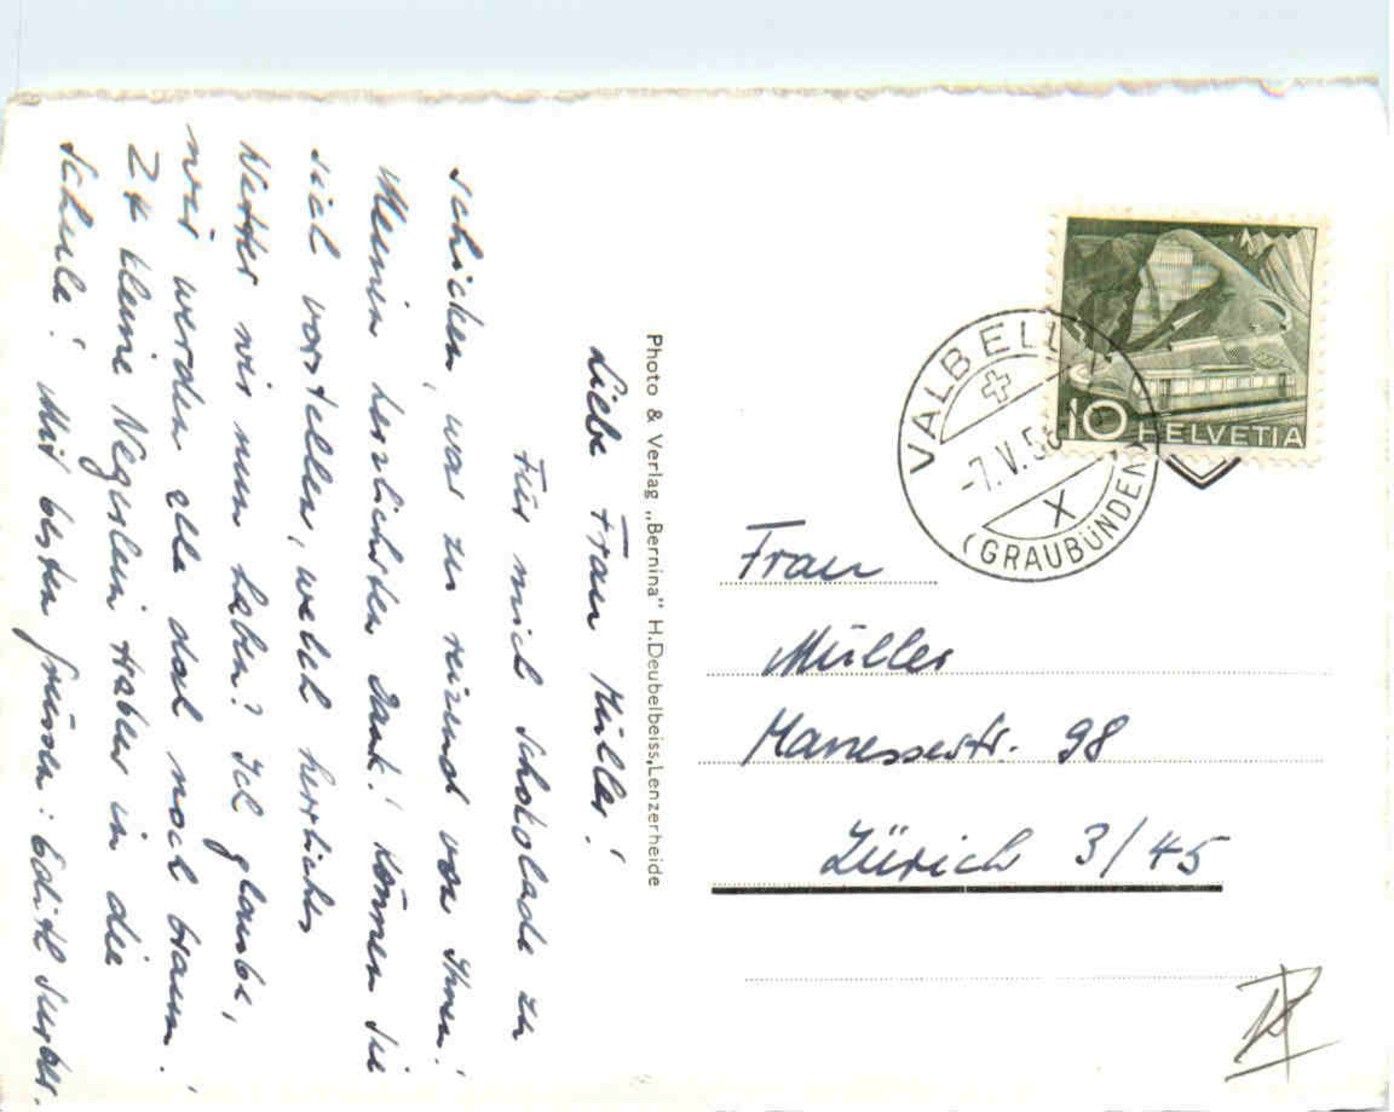 Liebe Frau Müller!
Für mich Schokolade zu
schicken, war zu reizend von Ihnen!
Meinen herzlichsten Dank! Können Sie
sich vorstellen, welch herrliches
Wetter wir nun haben? Ich glaube,
wir werden alle doch noch braun!
24 kleine Negerlein traben in die
Schule! Mit besten Grüssen: Edith
Photo & Verlag „Bernina" H.Deubelbeiss, Lenzerheide
10 HELVETIA
VALBELLA
-7.V.5
X
(GRAUBÜNDEN)
Frau
Müller
Manessestr. 98
Zürich 3/45